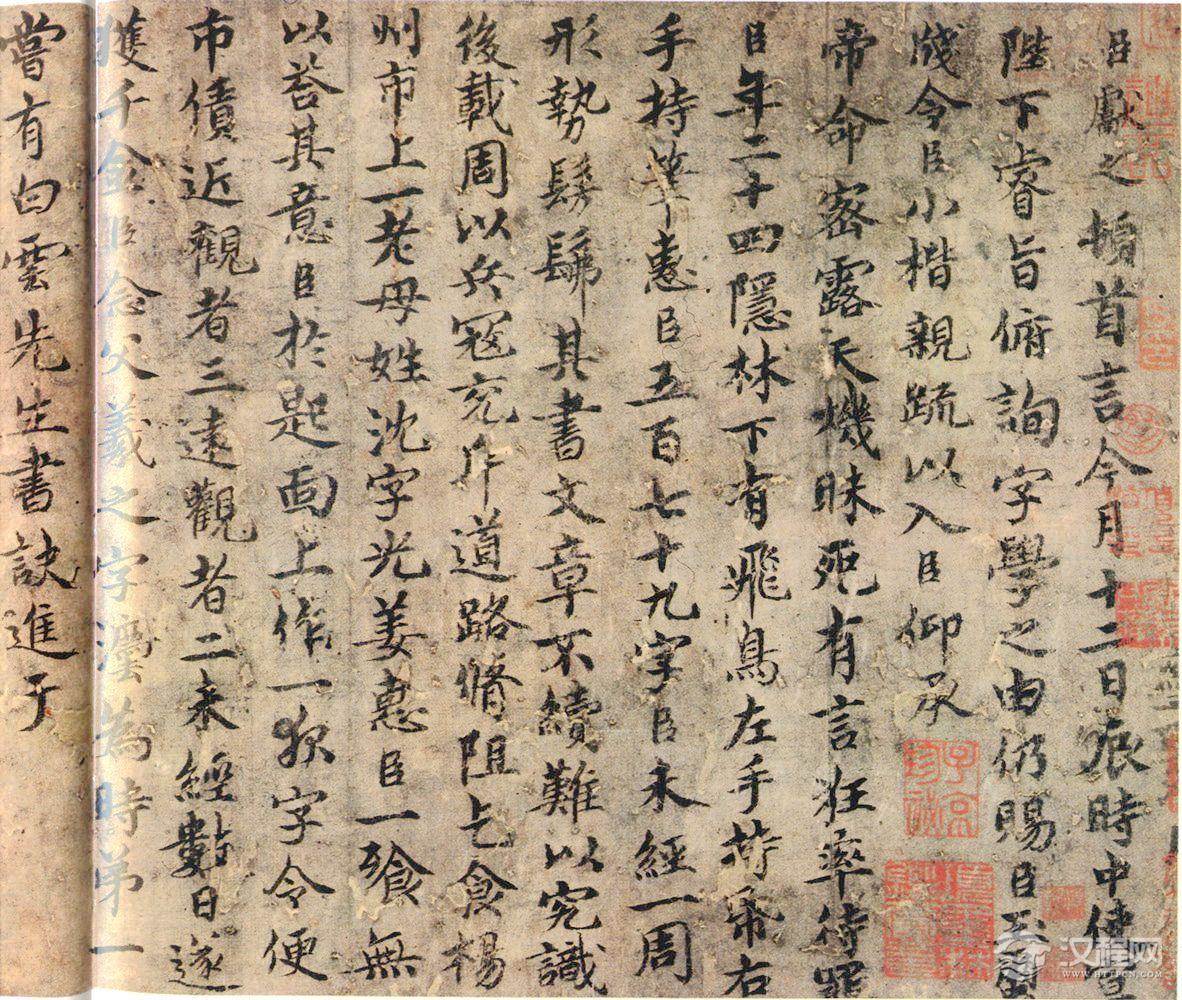 臣獻之頓首言今月十二日辰時中使宣
陛下睿旨俯詢字學之由仍賜臣玉
牋令臣小楷親疏以入臣仰承
帝命密露天機昧死有言狂率待罪
臣年二十四隱林下有飛鳥左手持帋右
手持筆惠臣五百七十九字臣未經一周
形勢髣髴其書文章不續難以究識
後載周以兵寇充斥道路脩阻乞食楊
州市上一老母姓沈字光姜惠臣一飱無
以荅其意臣於匙面上作一夜字令便
市債近觀者三遠觀者二未經數日遂
獲千金臣念父羲之字法為時第一
嘗有白雲先生書訣進于
汉程网
WWW.HTTPCN.COM